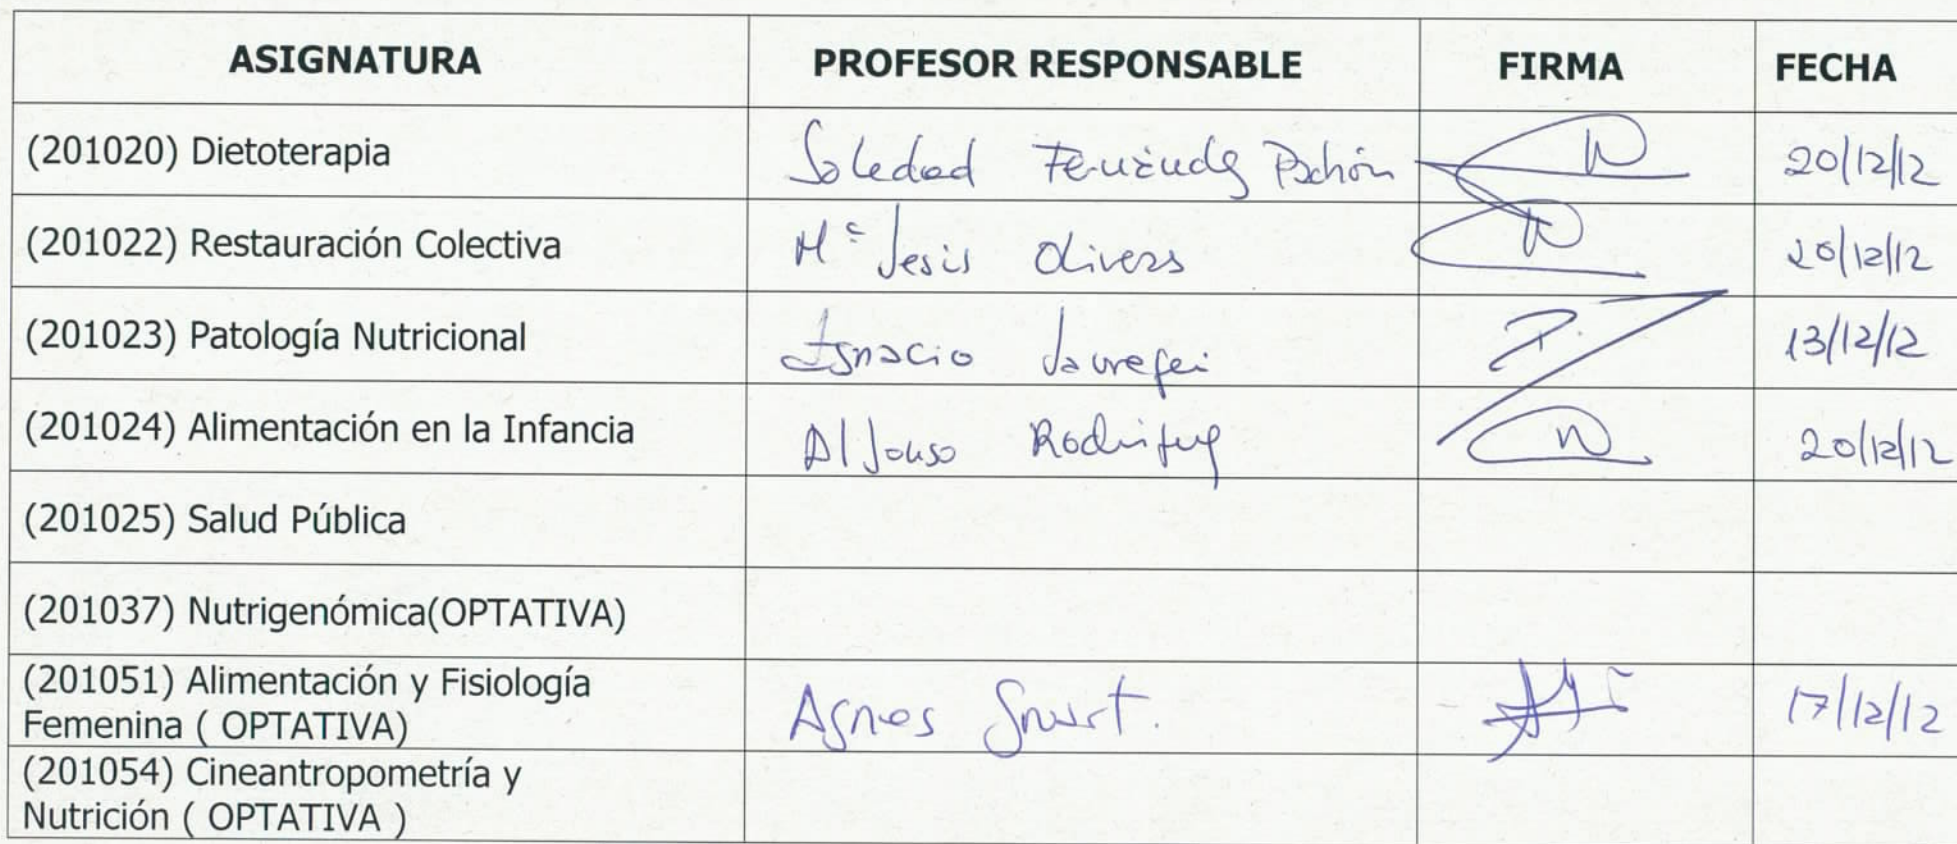 ASIGNATURA PROFESOR RESPONSABLE FIRMA FECHA
(201020) Dietoterapia Soledad Fernández Pachón 20/12/12
(201022) Restauración Colectiva Mª Jesús Olivers 20/12/12
(201023) Patología Nutricional Ignacio Jauregui 13/12/12
(201024) Alimentación en la Infancia Alfonso Rodríguez 20/12/12
(201025) Salud Pública
(201037) Nutrigenómica(OPTATIVA)
(201051) Alimentación y Fisiología
Femenina ( OPTATIVA) Agnes 17/12/12
(201054) Cineantropometría y
Nutrición ( OPTATIVA )